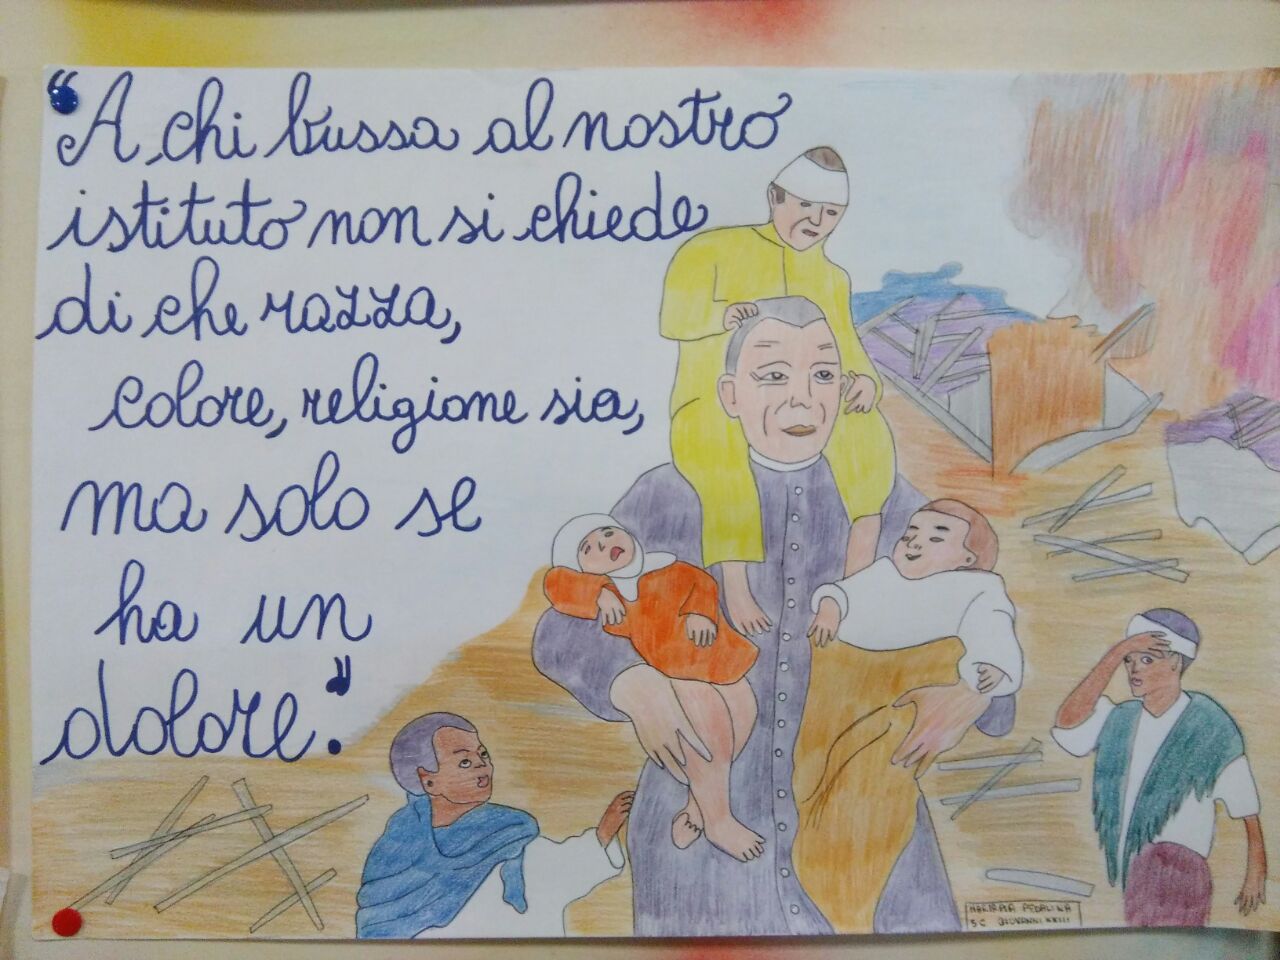 “A chi bussa al nostro
istituto non si chiede
di che razza,
colore, religione sia,
ma solo se
ha un
dolore.”
5C GIOVANNI XXIII